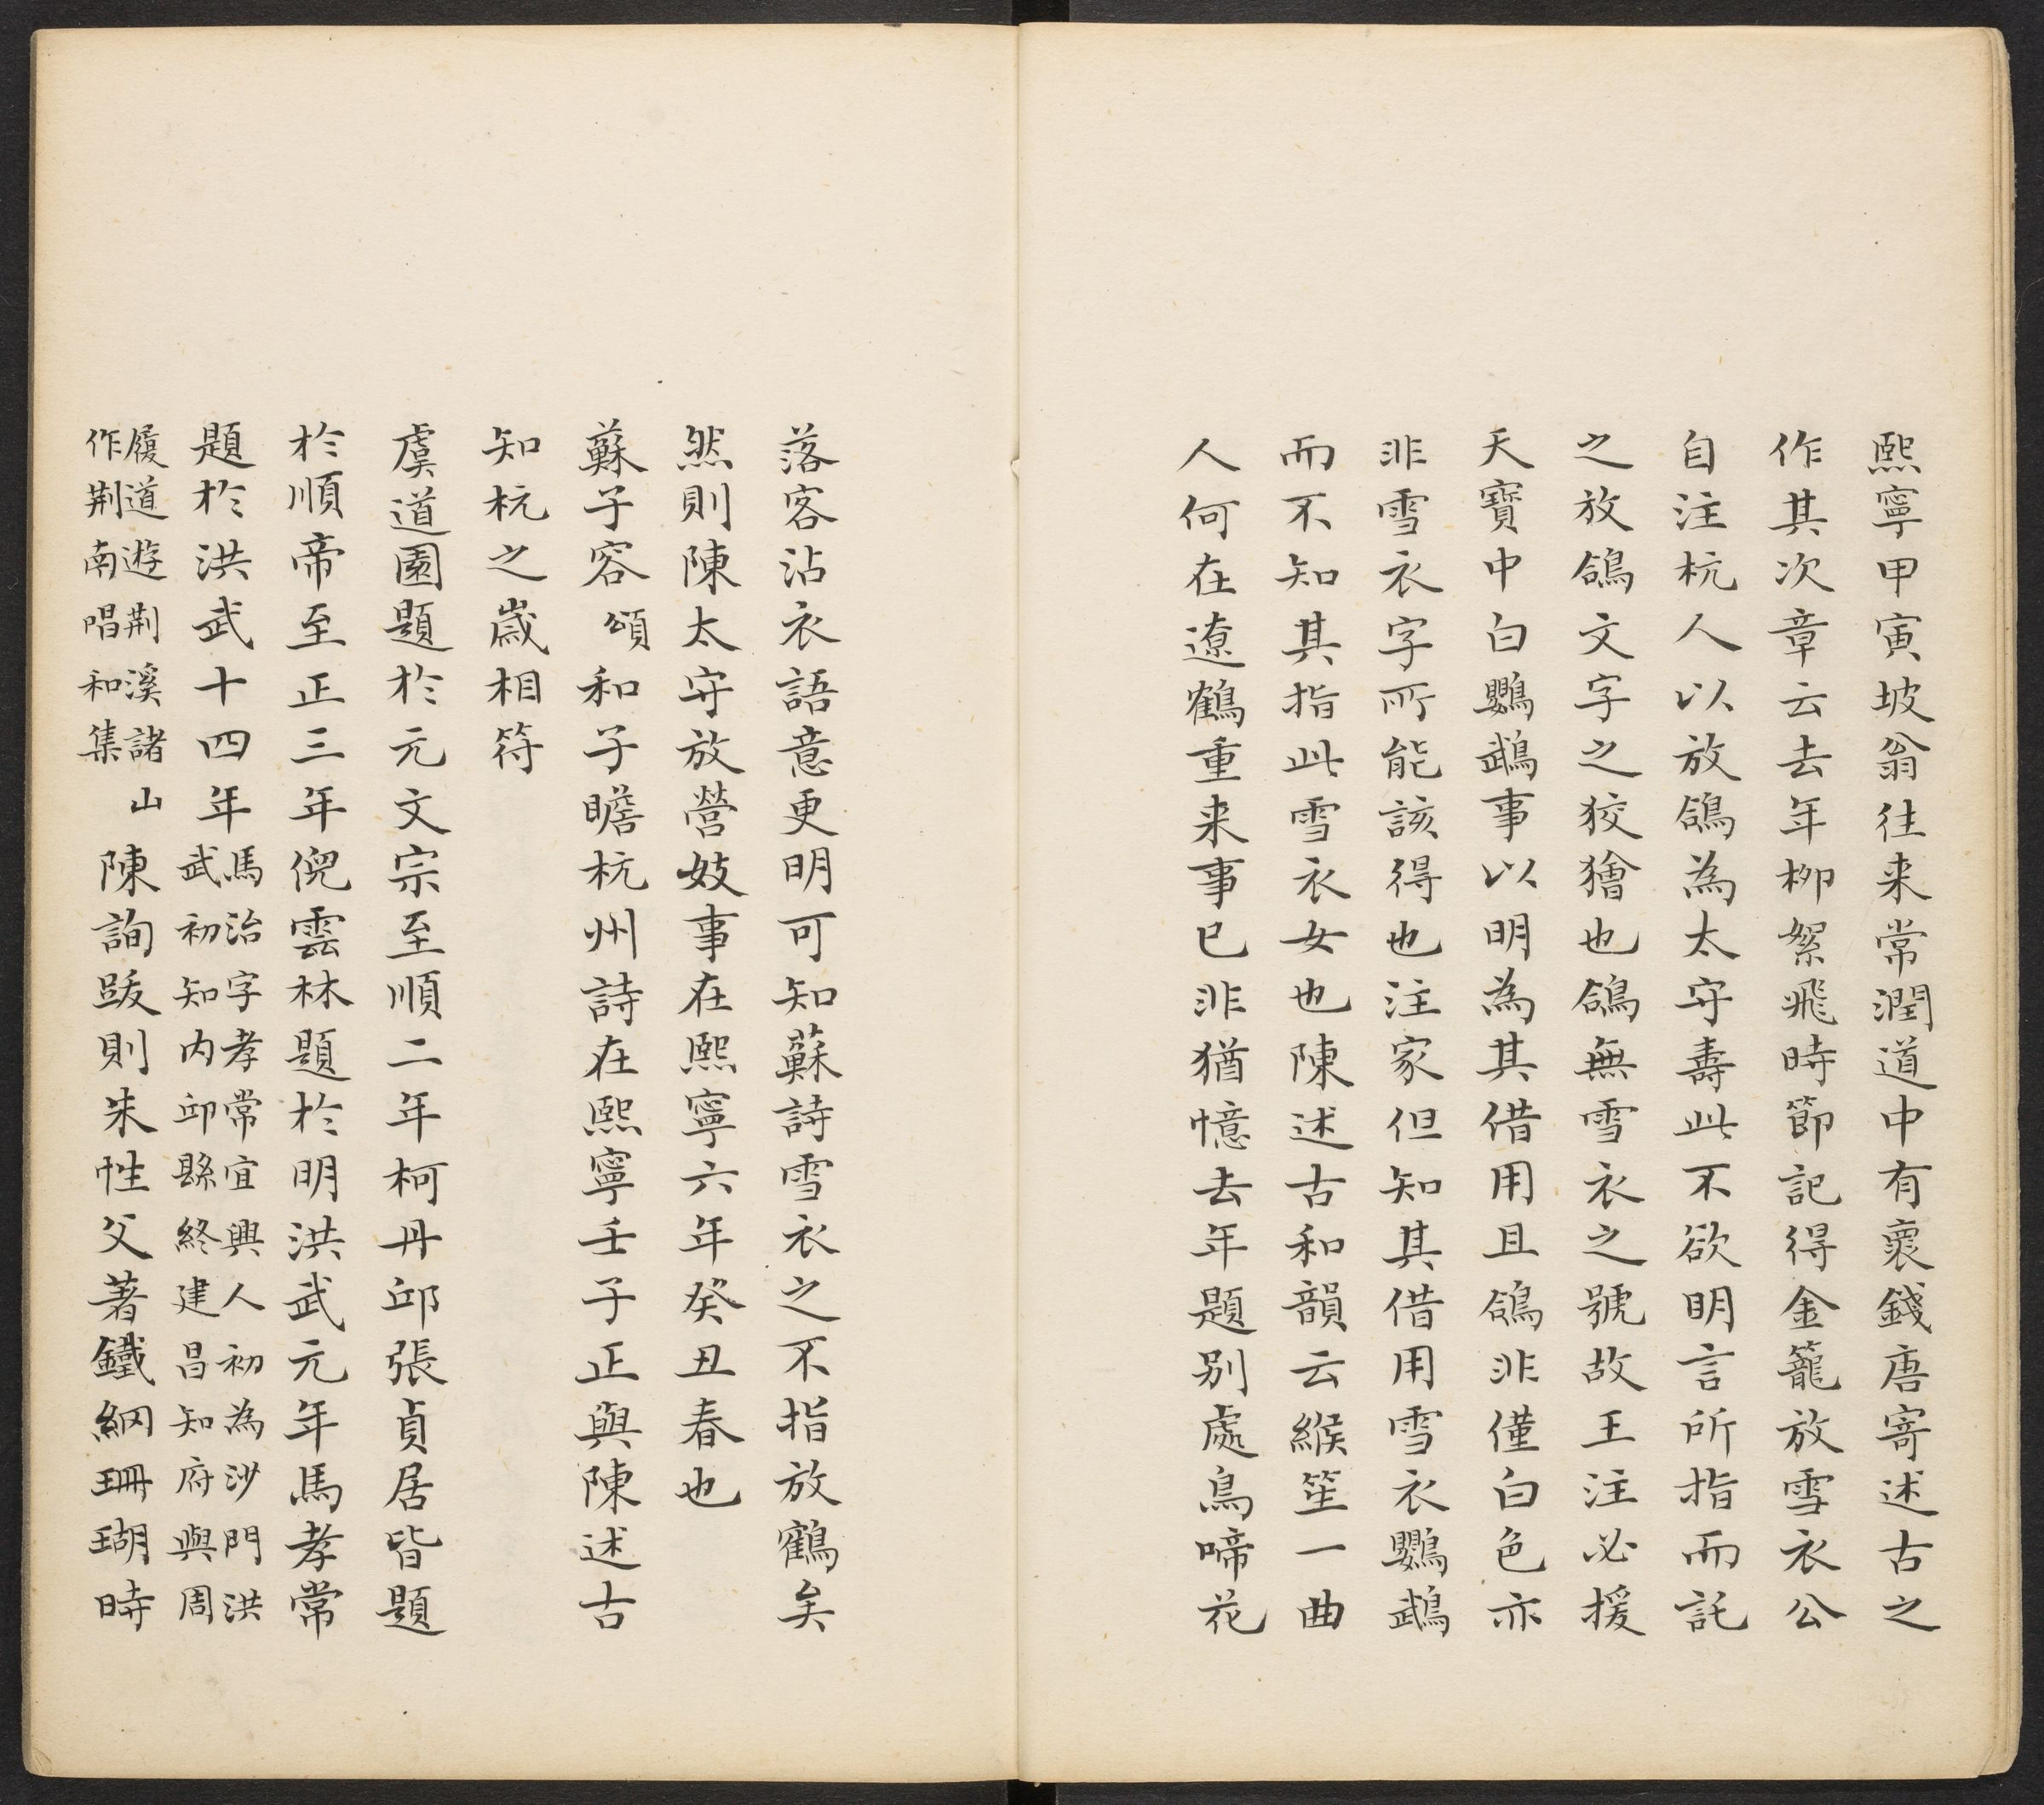 熙寧甲寅坡翁往来常潤道中有褱錢唐寄述古之
作其次章云去年柳絮飛時節記得金籠放雪衣公
自注杭人以放鴿為太守壽此不欲明言所指而託
之放鴿文字之狡獪也鴿無雪衣之號故王注必援
天寶中白鸚鵡事以明為其借用且鴿非僅白色亦
非雪衣字所能該得也注家但知其借用雪衣鸚鵡
而不知其指此雪衣女也陳述古和韻云緱笙一曲
人何在遼鶴重来事已非猶憶去年題别處鳥啼花
落客沾衣語意更明可知蘇詩雪衣之不指放鶴矣
然則陳太守放營妓事在熙寧六年癸丑春也
蘇子容頌和子瞻杭州詩在熙寧壬子正與陳述古
知杭之歲相符
虞道園題於元文宗至順二年柯丹邱張貞居皆題
於順帝至正三年倪雲林題於明洪武元年馬孝常
題於洪武十四年馬治字孝常宜興人初為沙門洪
武初知内邱縣終建昌知府與周
履道遊荆溪諸山
作荆南唱和集
陳詢跋則朱性父著鐵網珊瑚時